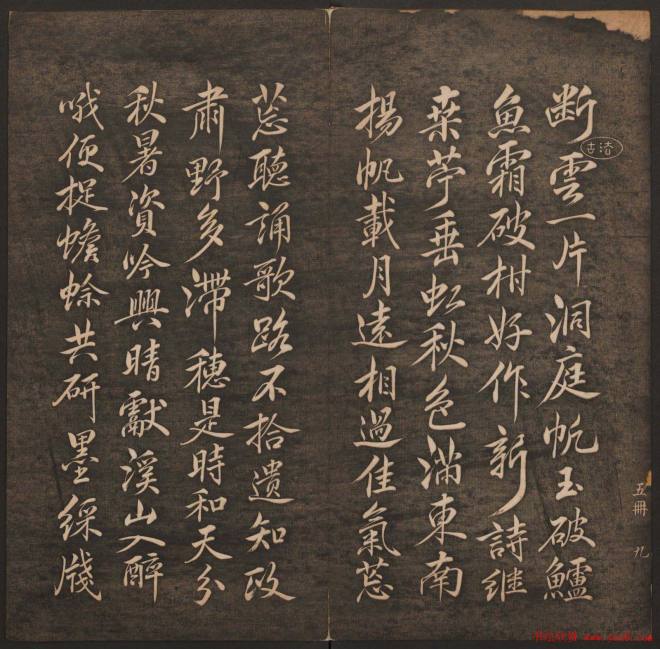 断雲一片洞庭帆玉破鱸
魚霜破柑好作新詩継
桒苧垂虹秋色滿東南
揚帆載月遠相過佳氣葱
葱聽誦歌路不拾遺知政
肅野多滯穗是時和天分
秋暑資吟興晴獻溪山入醉
哦便捉蟾蜍共研墨綵牋
五冊 九